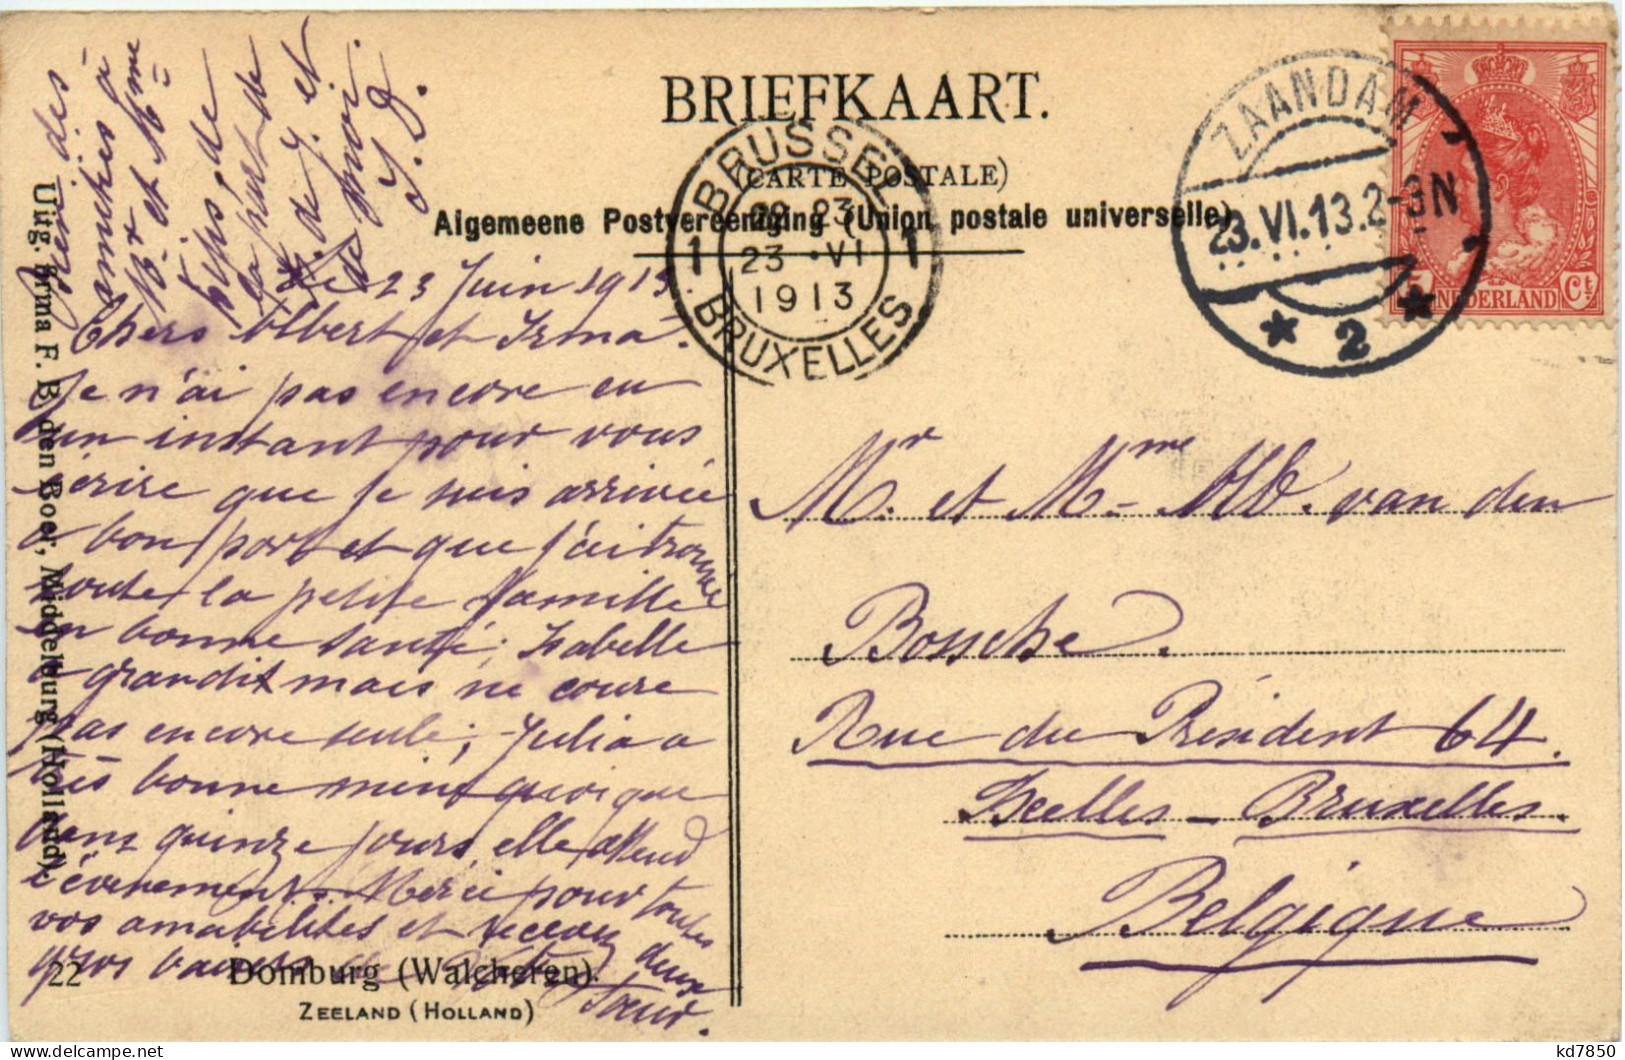 BRIEFKAART.
(CARTE POSTALE)
Algemeene Postvereeniging (Union postale universelle)
BRUSSEL
23 VI
1913
1 1
BRUXELLES
ZAANDAM
23.VI.13.2-3N
2
NEDERLAND
5 Ct
des
amitiés à
Mr et Mme
de
la part de
J. et
de moi.
J. J.
le 23 Juin 1913.
Chers Albert et Irma.
Je n'ai pas encore eu
un instant pour vous
écrire que je suis arrivée
à bon port et que j'ai trouvé
toute la petite famille
en bonne santé; Isabelle
a grandit mais ne coure
pas encore seule; Julia a
très bonne mine quoique
dans quinze jours, elle attend
l'évenement. Merci pour toutes
vos amabilités et recevez
gros baisers de
deux
soeur.
Mr. et Mme W. van den
Bossche.
Rue du Président 64.
Ixelles - Bruxelles.
Belgique
Uitg. Firma F. B. den Boer, Middelburg (Holland).
22 Domburg (Walcheren).
ZEELAND (HOLLAND)
kd7850